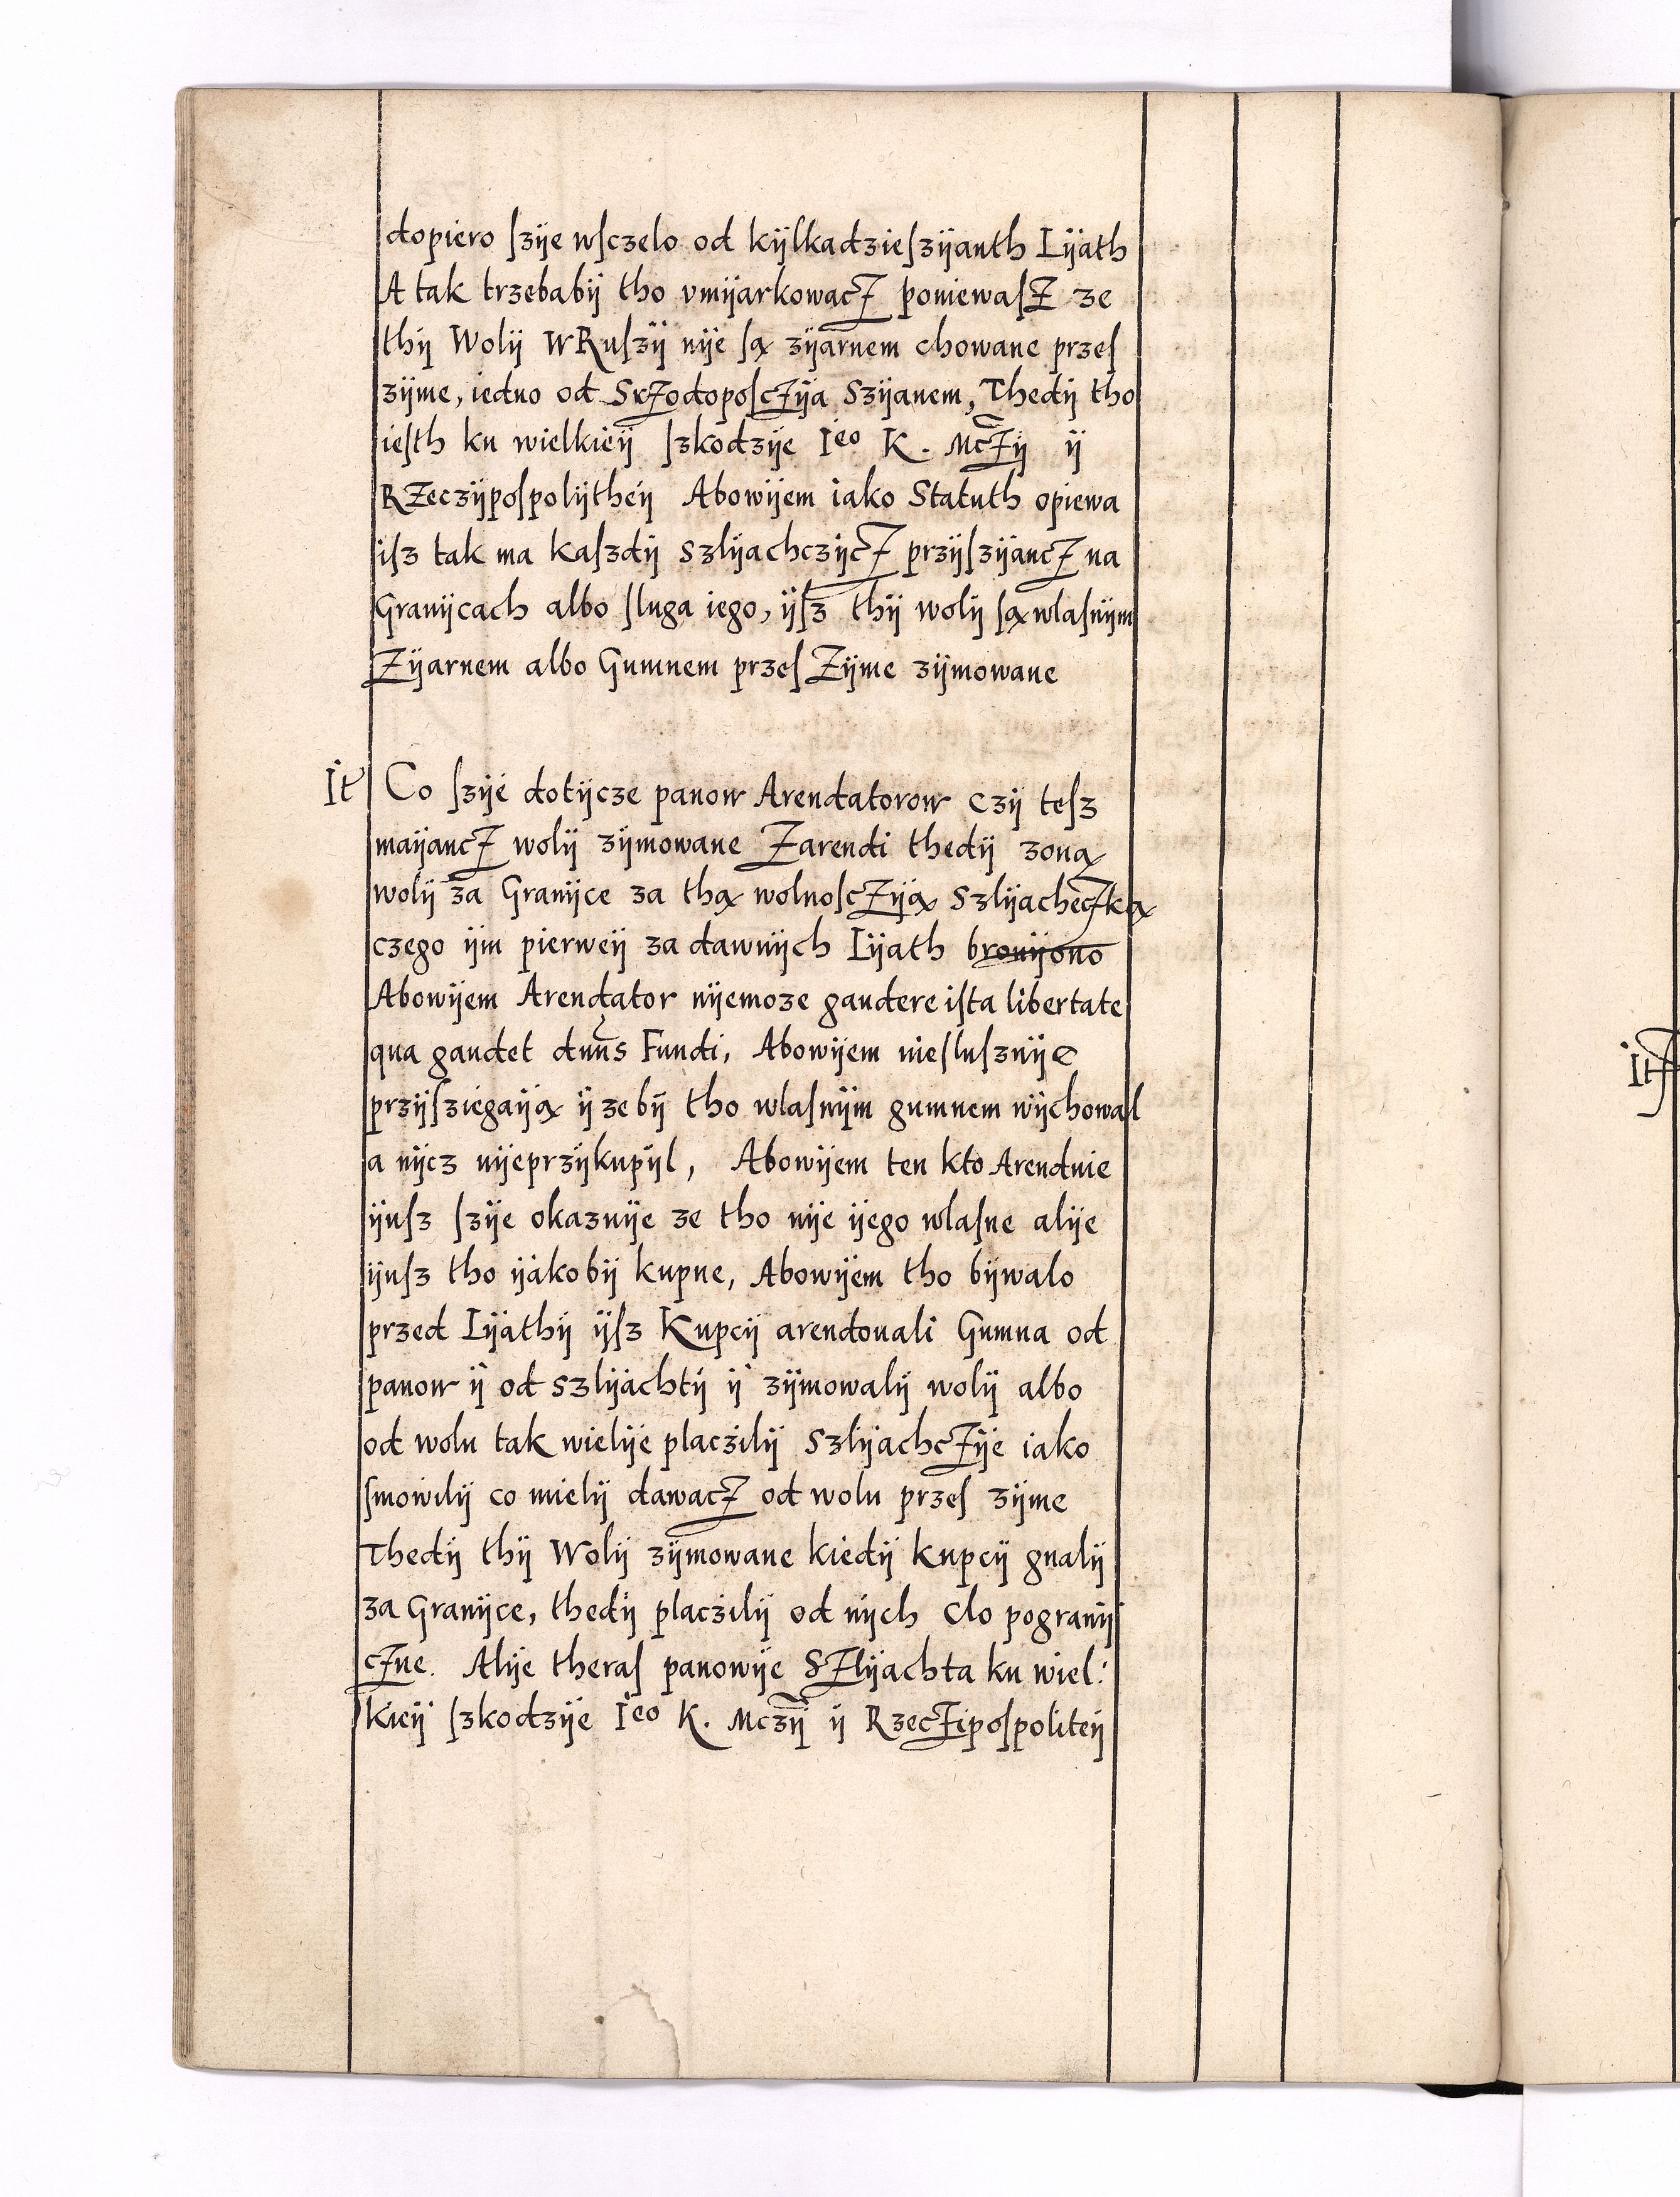 dopiero ſzÿe wſczelo od kÿlkadzieſzÿanth Lÿath
A tak trzebabÿ tho vmÿarkowacZ poniewaſZ ze
thÿ Wolÿ WRuſzÿ nÿe ſą zÿarnem chowane przeſ
zÿme, iedno od SrZodopoſcZÿa Szÿanem, Thedÿ tho
ieſth ku wielkieÿ ſzkodzÿe Ieo K. McZÿ ÿ
RZeczÿpoſpolÿtheÿ Abowÿem iako Statuth opiewa
iſz tak ma kaſzdÿ szlÿachczÿcZ przÿſzÿancZ na
Granÿcach albo ſluga iego, ÿſz thÿ wolÿ ſą wlaſnÿm
Zÿarnem albo Gumnem przeſ Zÿme zÿmowane
It Co ſzÿe dotÿcze panow Arendatorow czÿ teſz
maÿancZ wolÿ zÿmowane Zarendi thedÿ zoną
wolÿ za Granÿce za thą wolnoſcZÿą SzlÿachecZką
czego ÿm pierweÿ za dawnÿch Lÿath bronÿono
Abowÿem Arendator nÿemoze gaudere iſta libertate
qua gaudet dnns Fundi, Abowÿem nieſluſznÿe
przÿſziegaÿą ÿ zebÿ tho wlaſnÿm gumnem wÿchowal
a nÿcz nÿeprzÿkupÿl, Abowÿem ten kto Arenduie
ÿuſz ſzÿe okazuÿe ze tho nÿe ÿego wlaſne alÿe
ÿuſz tho ÿakobÿ kupne, Abowÿem tho bÿwalo
przed Lÿathÿ ÿſz Kupcÿ arendouali Gumna od
panow ÿ od szlÿachtÿ ÿ zÿmowalÿ wolÿ albo
od wolu tak wielÿe placzilÿ SzlÿachcZÿe iako
ſmowilÿ co mielÿ dawacZ od wolu przeſ zÿme
Thedÿ thÿ Wolÿ zÿmowane kiedÿ kupcÿ gnalÿ
za Granÿce, thedÿ placzilÿ od nÿch clo pogranÿ
cZne. Alÿe theraſ panowÿe SZlÿachta ku wiel:
kieÿ ſzkodzÿe Ieo K. Mczÿ ÿ RzecZipoſpoliteÿ